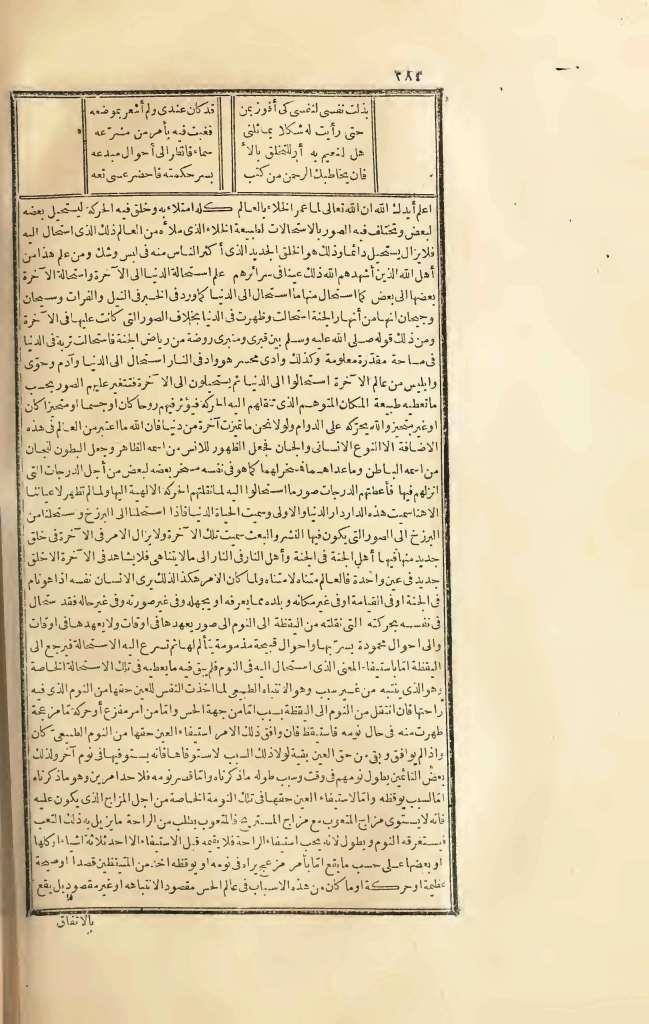 ٣٨٤
بذلت نفسي لنفسي كي أفوز بمن قد كان عندي ولم أشعر بموضعه
حتى رأيت له شكلا يماثلني فغبت فيه بأمر من مشرّعه
هل لنعيم به أم للتخلق بالأ سماء فانظر الى أحوال مبدعه
فان يخاطبك الرحمن من كثب بسر حكمته فاحضر عسى تعه
اعلم أيدك الله ان الله تعالى لما عمر الخلاء بالعالم كله امتلاء به وخلق فيه الحركة ليستحيل بعضه
لبعض وتختلف فيه الصور بالاستحالات لطبيعة الخلاء الذى ملأه من العالم ذلك الذى استحال اليه
فلا يزال يستحيل دائما وذلك هو الخلق الجديد الذى أكثر الناس منه فى لبس وشك ومن علم هذا من
أهل الله الذين أشهدهم الله ذلك عينا فى سرائرهم علم استحالة الدنيا الى الآخرة واستحالة الآخرة
بعضها الى بعض كما استحال منها ما استحال الى الدنيا كما ورد فى الخبر فى النيل والفرات وسيحان
وجيحان انها من أنهار الجنة استحالت وظهرت فى الدنيا بخلاف الصور التى كانت عليها فى الآخرة
ومن ذلك قوله صلى الله عليه وسلم بين قبرى ومنبرى روضة من رياض الجنة فاستحالت تربة فى الدنيا
فى مساحة مقدّرة معلومة وكذلك وادى محسر هو واد فى النار استحال الى الدنيا وآدم وحوّى
وابليس من عالم الآخرة استحالوا الى الدنيا ثم يستحيلون الى الآخرة فتتغير عليهم الصور بحسب
ما تعطيه طبيعة المكان المتوهم الذى تنقلهم اليه الحركة فيؤثر فيهم روحا كان او جسما او متحيزا كان
او غير متحيز والله يحرّكه على الدوام ولولا نحن ما تميزت آخرة من دنيا فان الله ما اعتبر من العالم فى هذه
الاضافة الا النوع الانسانى والجان فجعل الظهور للانس من اسمه الظاهر وجعل البطون للجان
من اسمه الباطن وما عداهما فمسخر لهما كما هو فى نفسه مسخر بعضه لبعض من أجل الدرجات التى
انزلهم فيها فأعطتهم الدرجات صور ما استحالوا اليه لما نقلتهم الحركة الالهية اليها ولما لم تظهر لاعياننا
الا هنا سميت هذه الدار دار الدنيا والاولى وسميت الحياة الدنيا فاذا استحلنا الى البرزخ وسنحلنا من
البرزخ الى الصور التى يكون فيها النشر والبعث سميت تلك الآخرة ولا يزال الامر فى الآخرة فى خلق
جديد منها فيها أهل الجنة فى الجنة وأهل النار فى النار الى ما لا يتناهى فلا يشاهد فى الآخرة الا خلق
جديد فى عين واحدة فالعالم متناه لا متناه ولما كان الامر هكذا لذلك يرى الانسان نفسه اذا هو نام
فى الجنة او فى القيامة او فى غير مكانه وبلده مما يعرفه او يجهله وفى غير صورته وفى غير حاله فقد ستحال
فى نفسه بحركته التى نقلته من اليقظة الى النوم الى صور يعهدها فى اوقات ولا يعهدها فى اوقات
والى احوال محمودة يسر بها واحوال قبيحة مذمومة يتألم لها ثم تسرع اليه الاستحالة فيرجع الى
اليقظة اما باستيفاء المعنى الذى استحال اليه فى النوم فلم يبق فيه ما يعطيه فى تلك الاستحالة الخاصة
وهو الذى ينتبه من غير سبب وهو الانتباه الطبيعى لما اخذت النفس للعين حقها من النوم الذى فيه
راحتها فان انتقل من النوم الى اليقظة بسبب اما من جهة الحس واما من امر مفزع أو حركة ما مزعجة
ظهرت منه فى حال نومه فاستيقظ فان وافق ذلك الامر استيفاء العين حقها من النوم الطبيعى كان
واذا لم يوافق وبقى من حق العين بقية لولا ذلك السبب لاستوفاها فانه يستوفيها فى نوم آخر ولذلك
بعض النائمين يطول نومهم فى وقت وسبب طوله ما ذكرناه واما قصر نومه فلاحد امرين وهو ما ذكرناه
اما لسبب يوقظه واما لاستيفاء العين حقها فى تلك النومة الخاصة من اجل المزاج الذى يكون عليه
فانه لا يستوى مزاج المتعوب مع مزاج المستريح فالمتعوب يطلب من الراحة ما يزيل به ذلك التعب
فيستغرقه النوم ويطول لانه يحب استيفاء الراحة فلا يقمه قبل الاستيفاء الا احد ثلاثة اشياء او كلها
او بعضها على حسب ما يقع اما بأمر مزعج يراه فى نومه او يوقظه احد من المتيقظين قصدا او صيحة
عظيمة او حركة او ما كان من هذه الاسباب فى عالم الحس مقصود الانتباهه او غير مقصود بل يقع
بالاتفاق